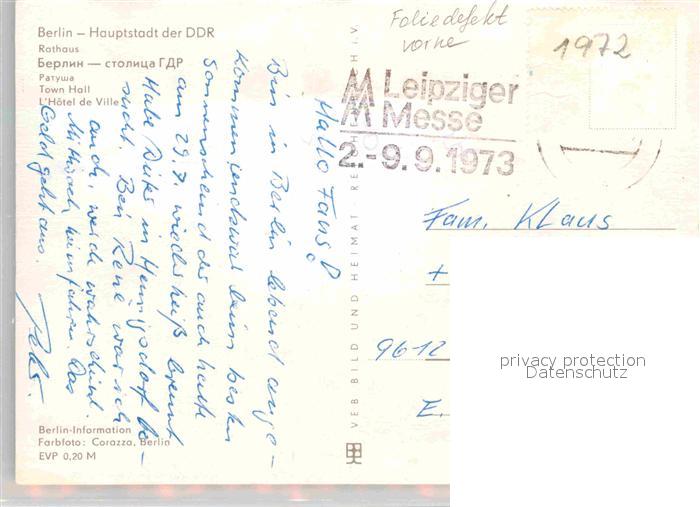 Berlin – Hauptstadt der DDR
Rathaus
Берлин — столица ГДР
Ратуша
Town Hall
L'Hôtel de Ville
Hallo Fans!
Bin in Berlin lebend ange-
kommen, und zwar beim besten
Sonnenschein der auch heute
am 29.7. wieder heiß brennt
Habe in Hennigsdorf be-
sucht. Bei René war ich
auch, werde wahrscheinl.
Mittwoch heimfahren. Das
Geld geht aus.
VEB BILD UND HEIMAT · REICHENBACH i. V.
Berlin-Information
Farbfoto: Corazza, Berlin
EVP 0,20 M
Foliedefekt
vorne
1972
MM Leipziger
Messe
2.-9.9.1973
Fam. Klaus
9612
E.
privacy protection
Datenschutz